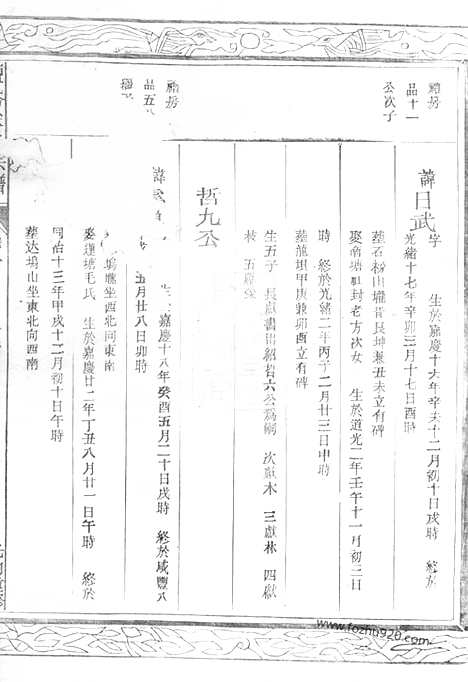 福房
品十一
公次子
諱日武 字 生於嘉慶十六年辛未十二月初十日戌時 終於
光緒十七年辛卯三月十七日酉時
葬石粉山壠背艮坤兼丑未立有碑
娶南塘 封老方次女 生於道光二年壬午十一月初三日
時 終於光緒二年丙子二月廿三日申時
葬龍垻甲庚兼卯酉立有碑
生五子 長獻書出紹哲六公為嗣 次獻木 三獻林 四獻
枝 五獻
福房
品五
哲九公
諱 嘉慶十八年癸酉五月二十日戌時 終於咸豐八
五月廿八日卯時
塢壠坐西北向東南
娶蓮塘毛氏 生於嘉慶廿二年丁丑八月廿一日午時 終於
同治十三年甲戌十二月初十日午時
葬达塢山坐東北向西南
宗譜
www.fozhu920.com